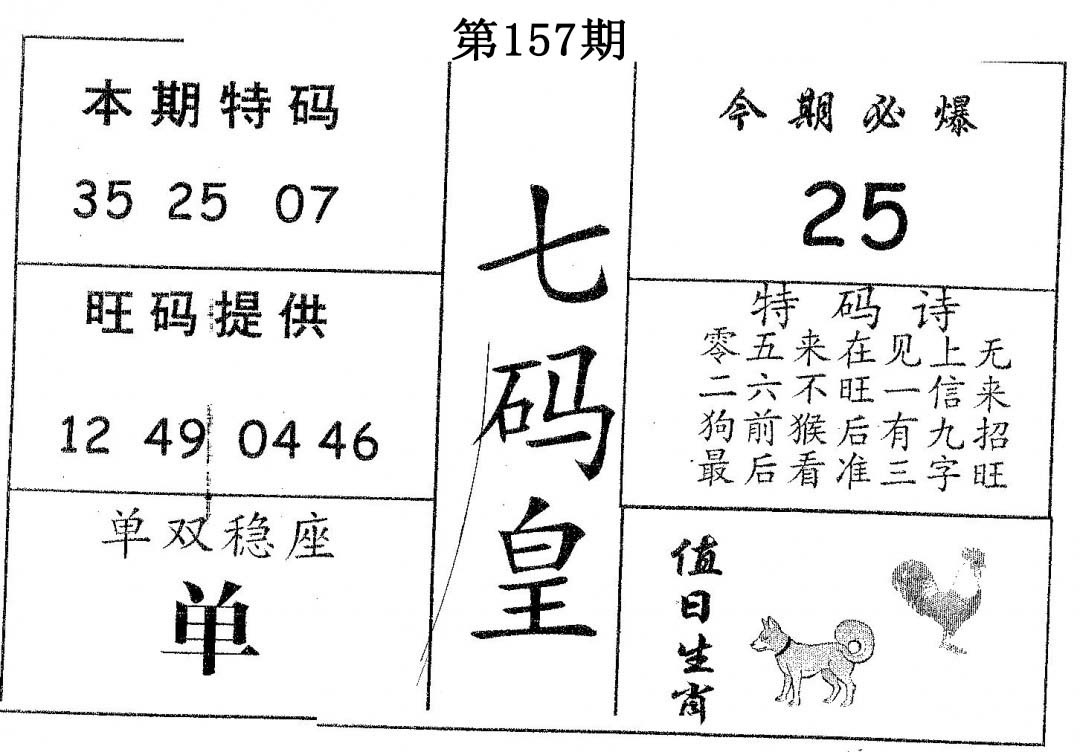 第157期
本期特码
35 25 07
旺码提供
12 49 04 46
单双稳座
单
七码皇
今期必爆
25
特码诗
零五来在见上无
二六不旺一信来
狗前猴后有九招
最后看准三字旺
值日生肖